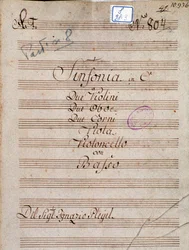 No. 804.
Sinfonia in C
Due Violini
Due Oboe
Due Corni
Viola
Violoncello
con
Basso
Del Sigl: Ignazio Pleyel.